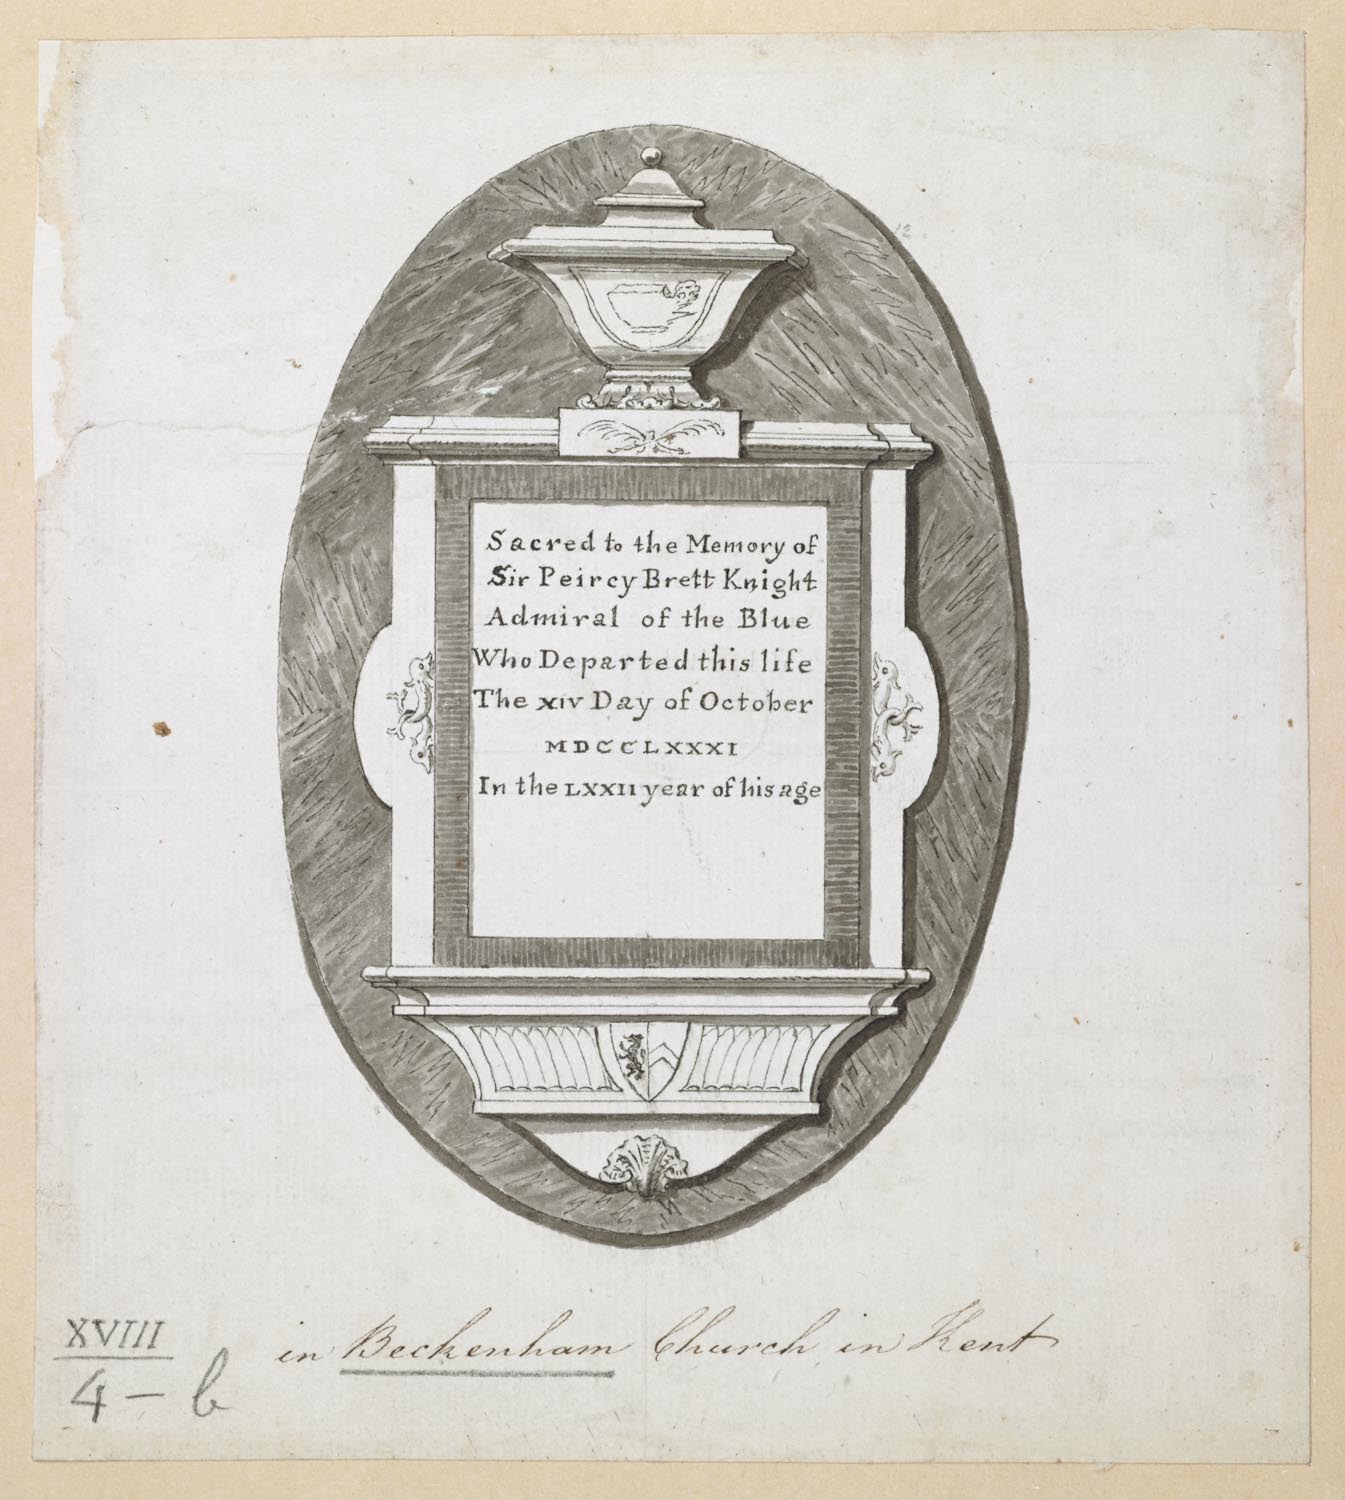 12.
Sacred to the Memory of
Sir Peircy Brett Knight
Admiral of the Blue
Who Departed this life
The XIV Day of October
MDCCLXXXI
In the LXXII year of his age
in Beckenham Church in Kent
XVIII
4 - b